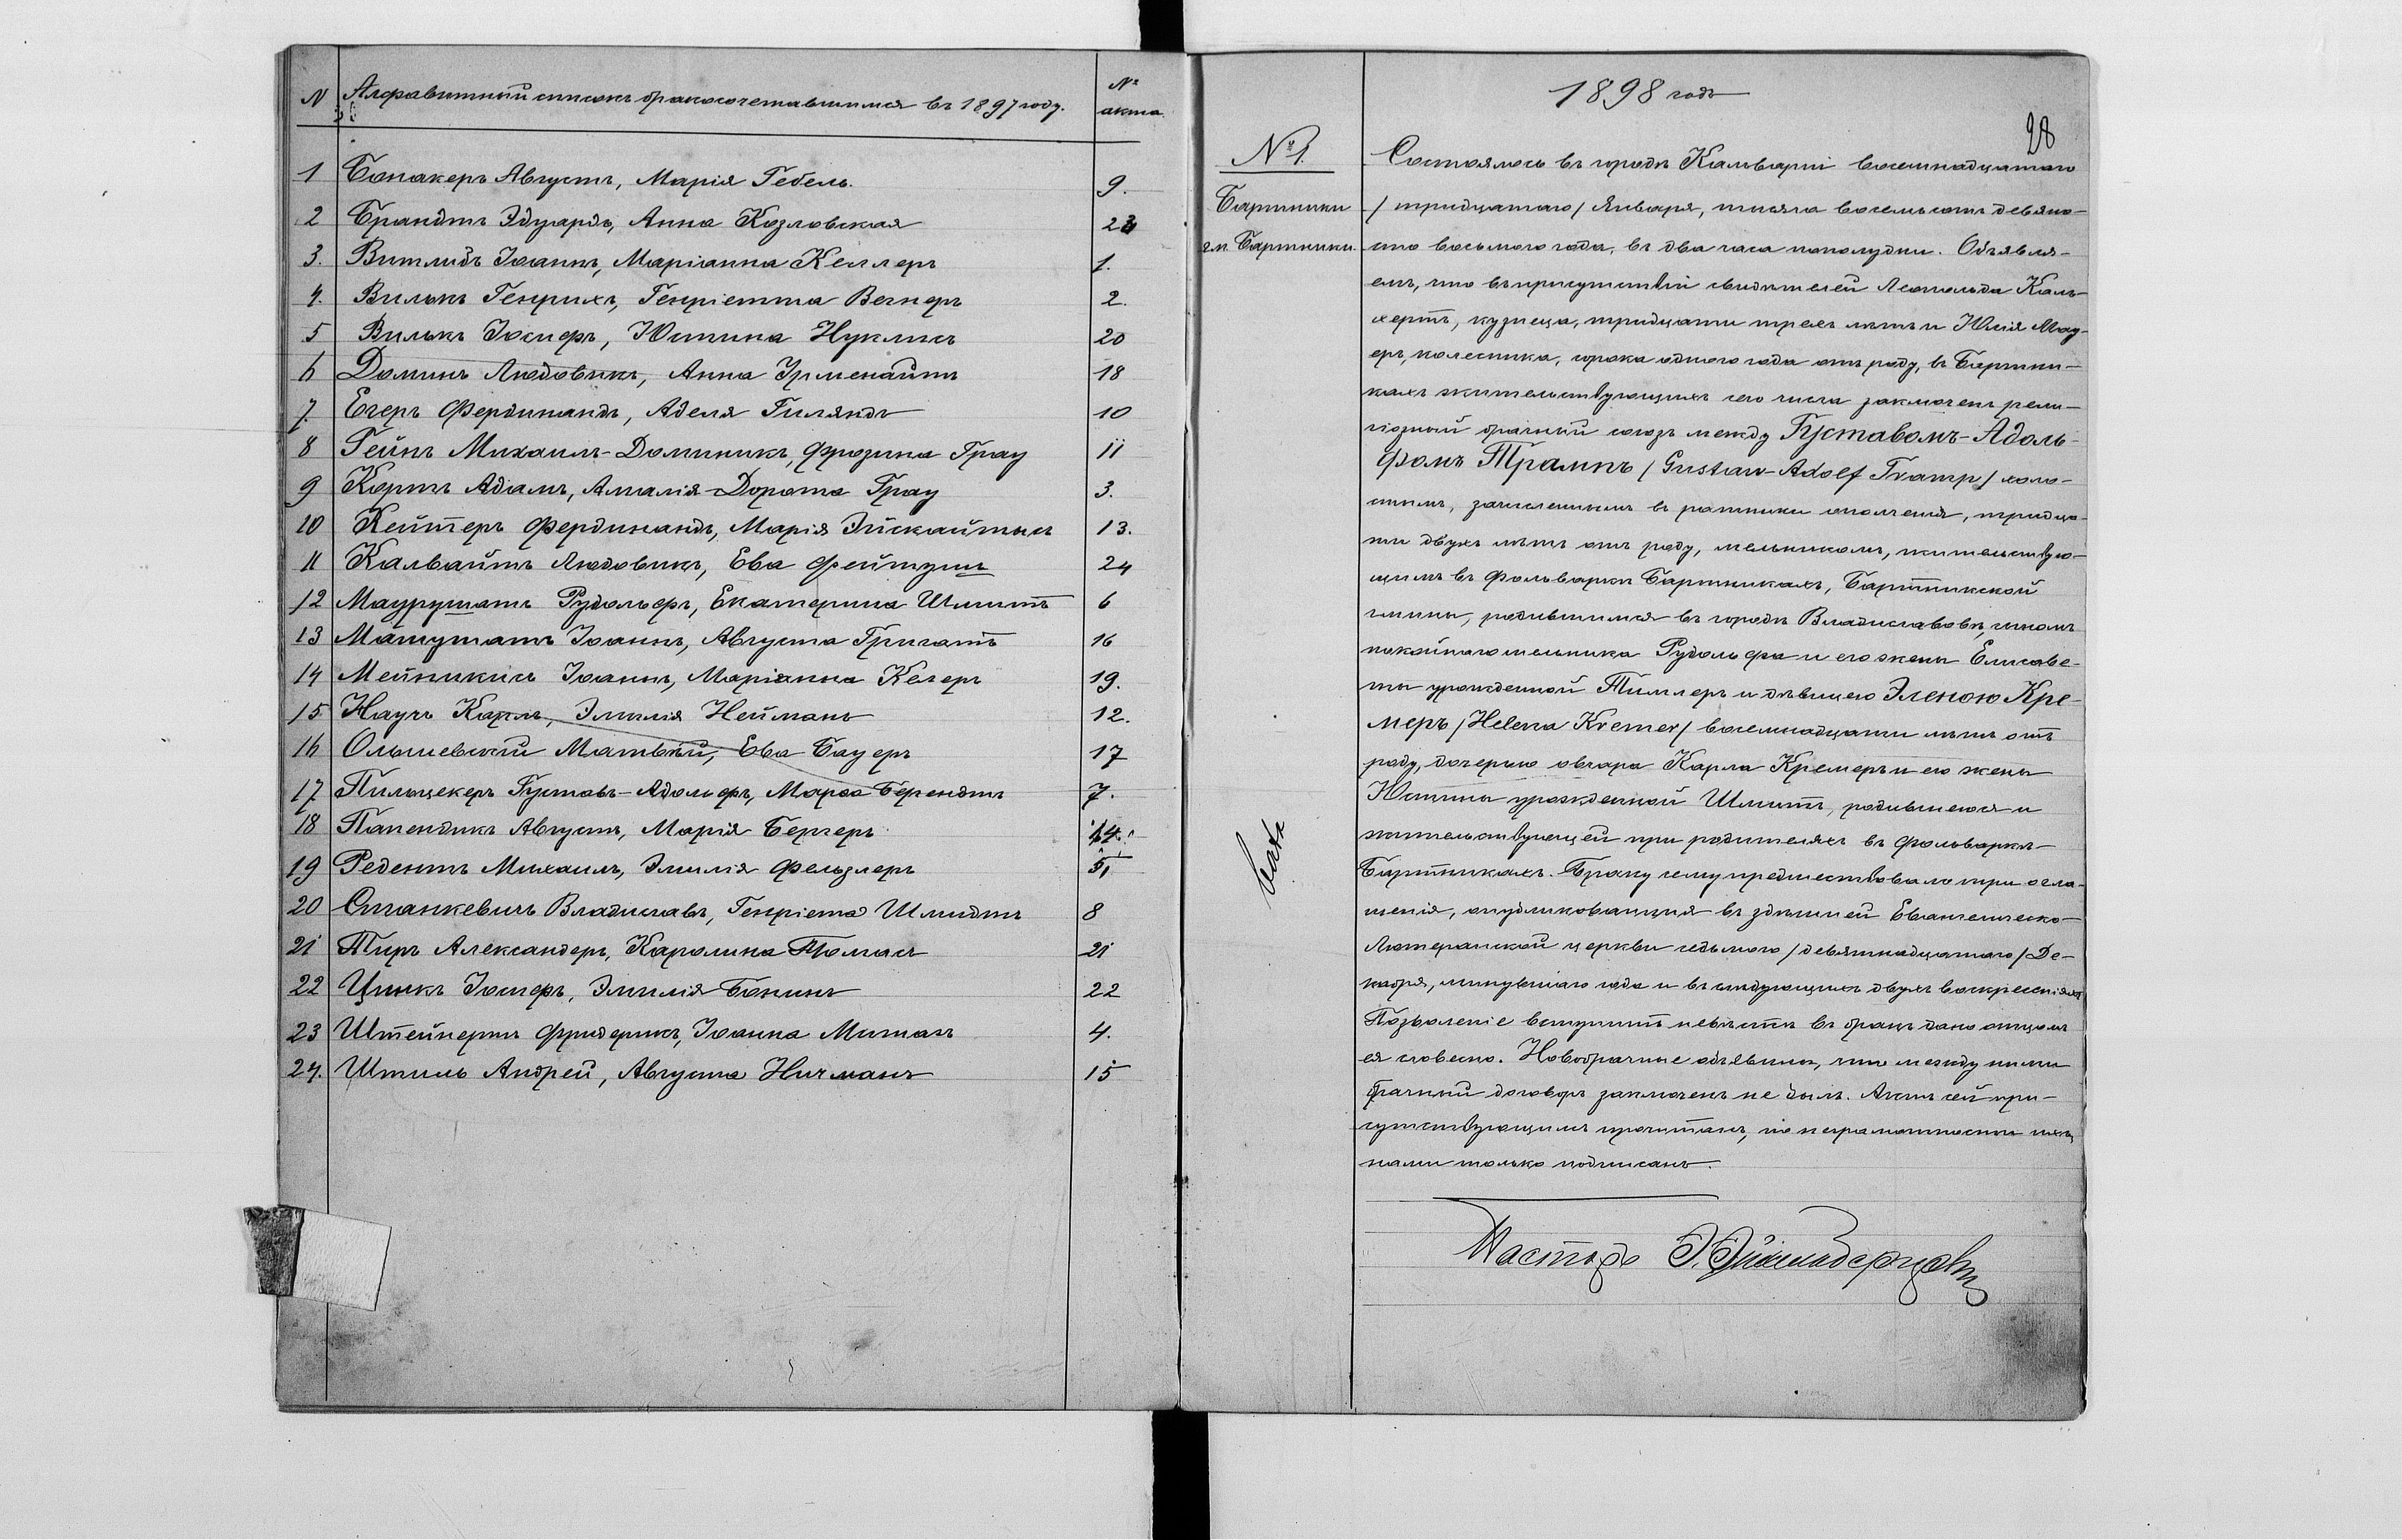 N Алфавитный списокъ бракосочетавшимся въ 1897 году. № акта
1 Бонакеръ Августъ, Марія Гебель. 9.
2 Брандтъ Эдуардъ, Анна Козловская 23
3. Витлидъ Іоаннъ, Маріанна Келлеръ 1.
4. Вилькъ Генрихъ, Генріетта Вегнеръ 2.
5 Вилькъ Іосифъ, Юстина Нуклисъ 20
6 Доминъ Людовикъ, Анна Ирменайтъ 18
7. Егеръ Фердинандъ, Аделя Гиляндъ 10
8 Гейнъ Михаилъ-Доминикъ, Фрозина Грау 11
9 Кортъ Адамъ, Амалія-Дорота Грау 3.
10 Кейтеръ Фердинандъ, Марія Эйскайтысъ 13.
11 Кальвайтъ Людовикъ, Ева Фейтзинъ 24
12 Маурушатъ Рудольфъ, Екатерина Шмитъ 6
13 Матушатъ Іоаннъ, Августа Григатъ 16
14 Мейкикисъ Іоаннъ, Маріанна Келеръ 19.
15 Научъ Карлъ, Эмилія Нейманъ 12.
16 Ольшевскій Матвѣй, Ева Бауеръ 17
17 Пильцекеръ Густавъ-Адольфъ, Марѳа Берендтъ 7.
18 Папендикъ Августъ, Марія Бергеръ 14.
19 Редентъ Михаилъ, Эмилія Фельзлеръ 5
20 Станкевичъ Владиславъ, Генріета Шмидтъ 8
21 Тиръ Александеръ, Каролина Томасъ 21
22 Цинкъ Іосифъ, Эмилія Бонинъ 22
23 Штейнертъ Фридерикъ, Іоанна Миталъ 4.
24. Штиль Андрей, Августа Ничманъ 15
1898 годъ
28
№ 1.
Бартники
гм. Бартники
Состоялось въ городѣ Кальваріи восемнадцатаго
/ тридцатаго / Января, тысяча восемьсотъ девяно-
сто восьмого года, въ два часа пополудни. Объявля-
емъ, что въ присутствіи свидѣтелей Леопольда Каль-
хертъ, кузнеца, тридцати трехъ лѣтъ и Юлія Мау-
еръ, колесника, сорока одного года отъ роду, въ Бартни-
кахъ жительствующихъ сего числа заключенъ рели-
гіозный брачный союзъ между Густавомъ-Адоль-
фомъ Трампъ / Gustaw-Adolf Tramp / холо-
стымъ, зачисленнымъ въ ратники ополченія, тридца-
ти двухъ лѣтъ отъ роду, мельникомъ, жительствую-
щимъ въ фольваркѣ Бартникахъ, Бартникской
гмины, родившимся въ городѣ Владиславовѣ, сыномъ
покойнаго мельника Рудольфа и его жены Елисаве-
ты урожденной Тиллеръ и дѣвицею Эленою Кре-
меръ / Helena Kremer / восемнадцати лѣтъ отъ
роду, дочерью овчара Карла Кремеръ и его жены
Юстины урожденной Шмитъ, родившеюся и
жительствующей при родителяхъ въ фольваркѣ
Бартникахъ. Браку сему предшествовало три огла-
шенія, опубликованныя въ здѣшней Евангелическо-
Лютеранской церкви седьмого / девятнадцатаго / Де-
кабря, минувшаго года и въ слѣдующихъ двухъ воскресеніяхъ
Позволеніе вступить невѣстѣ въ бракъ дано отцомъ
ея словесно. Новобрачные объявили, что между ними
брачный договоръ заключенъ не былъ. Актъ сей при-
сутствующимъ прочитанъ, по неграмотности ихъ,
нами только подписанъ.
Пасторъ